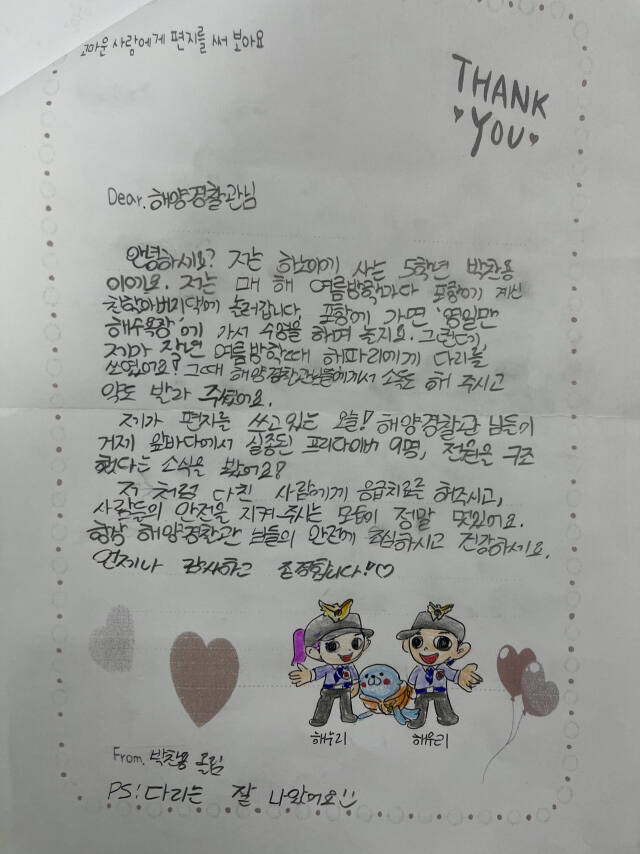 고마운 사람에게 편지를 써 보아요
THANK
YOU
Dear. 해양경찰관님
안녕하세요? 저는 하노이에 사는 5학년 박찬용
이에요. 저는 매 해 여름방학마다 포항에 계신
친할아버지댁에 놀러갑니다. 포항에 가면 '영일만
해수욕장'에 가서 수영을 하며 놀지요. 그런데,
제가 작년 여름방학때 해파리에게 다리를
쏘였어요! 그때 해양경찰관님들에게서 소독도 해 주시고
약도 발라 주셨어요.
제가 편지를 쓰고있는 오늘! 해양경찰관 님들이
거제 앞바다에서 실종된 프리다이버 9명, 전원을 구조
했다는 소식을 봤어요!
저 처럼 다친 사람에게 응급치료를 해주시고,
사람들의 안전을 지켜 주시는 모습이 정말 멋있어요.
항상 해양경찰관 님들의 안전에 조심하시고 건강하세요.
언제나 감사하고 존경합니다!♡
해누리 해우리
From. 박찬용 올림
PS! 다리는 잘 나았어요!